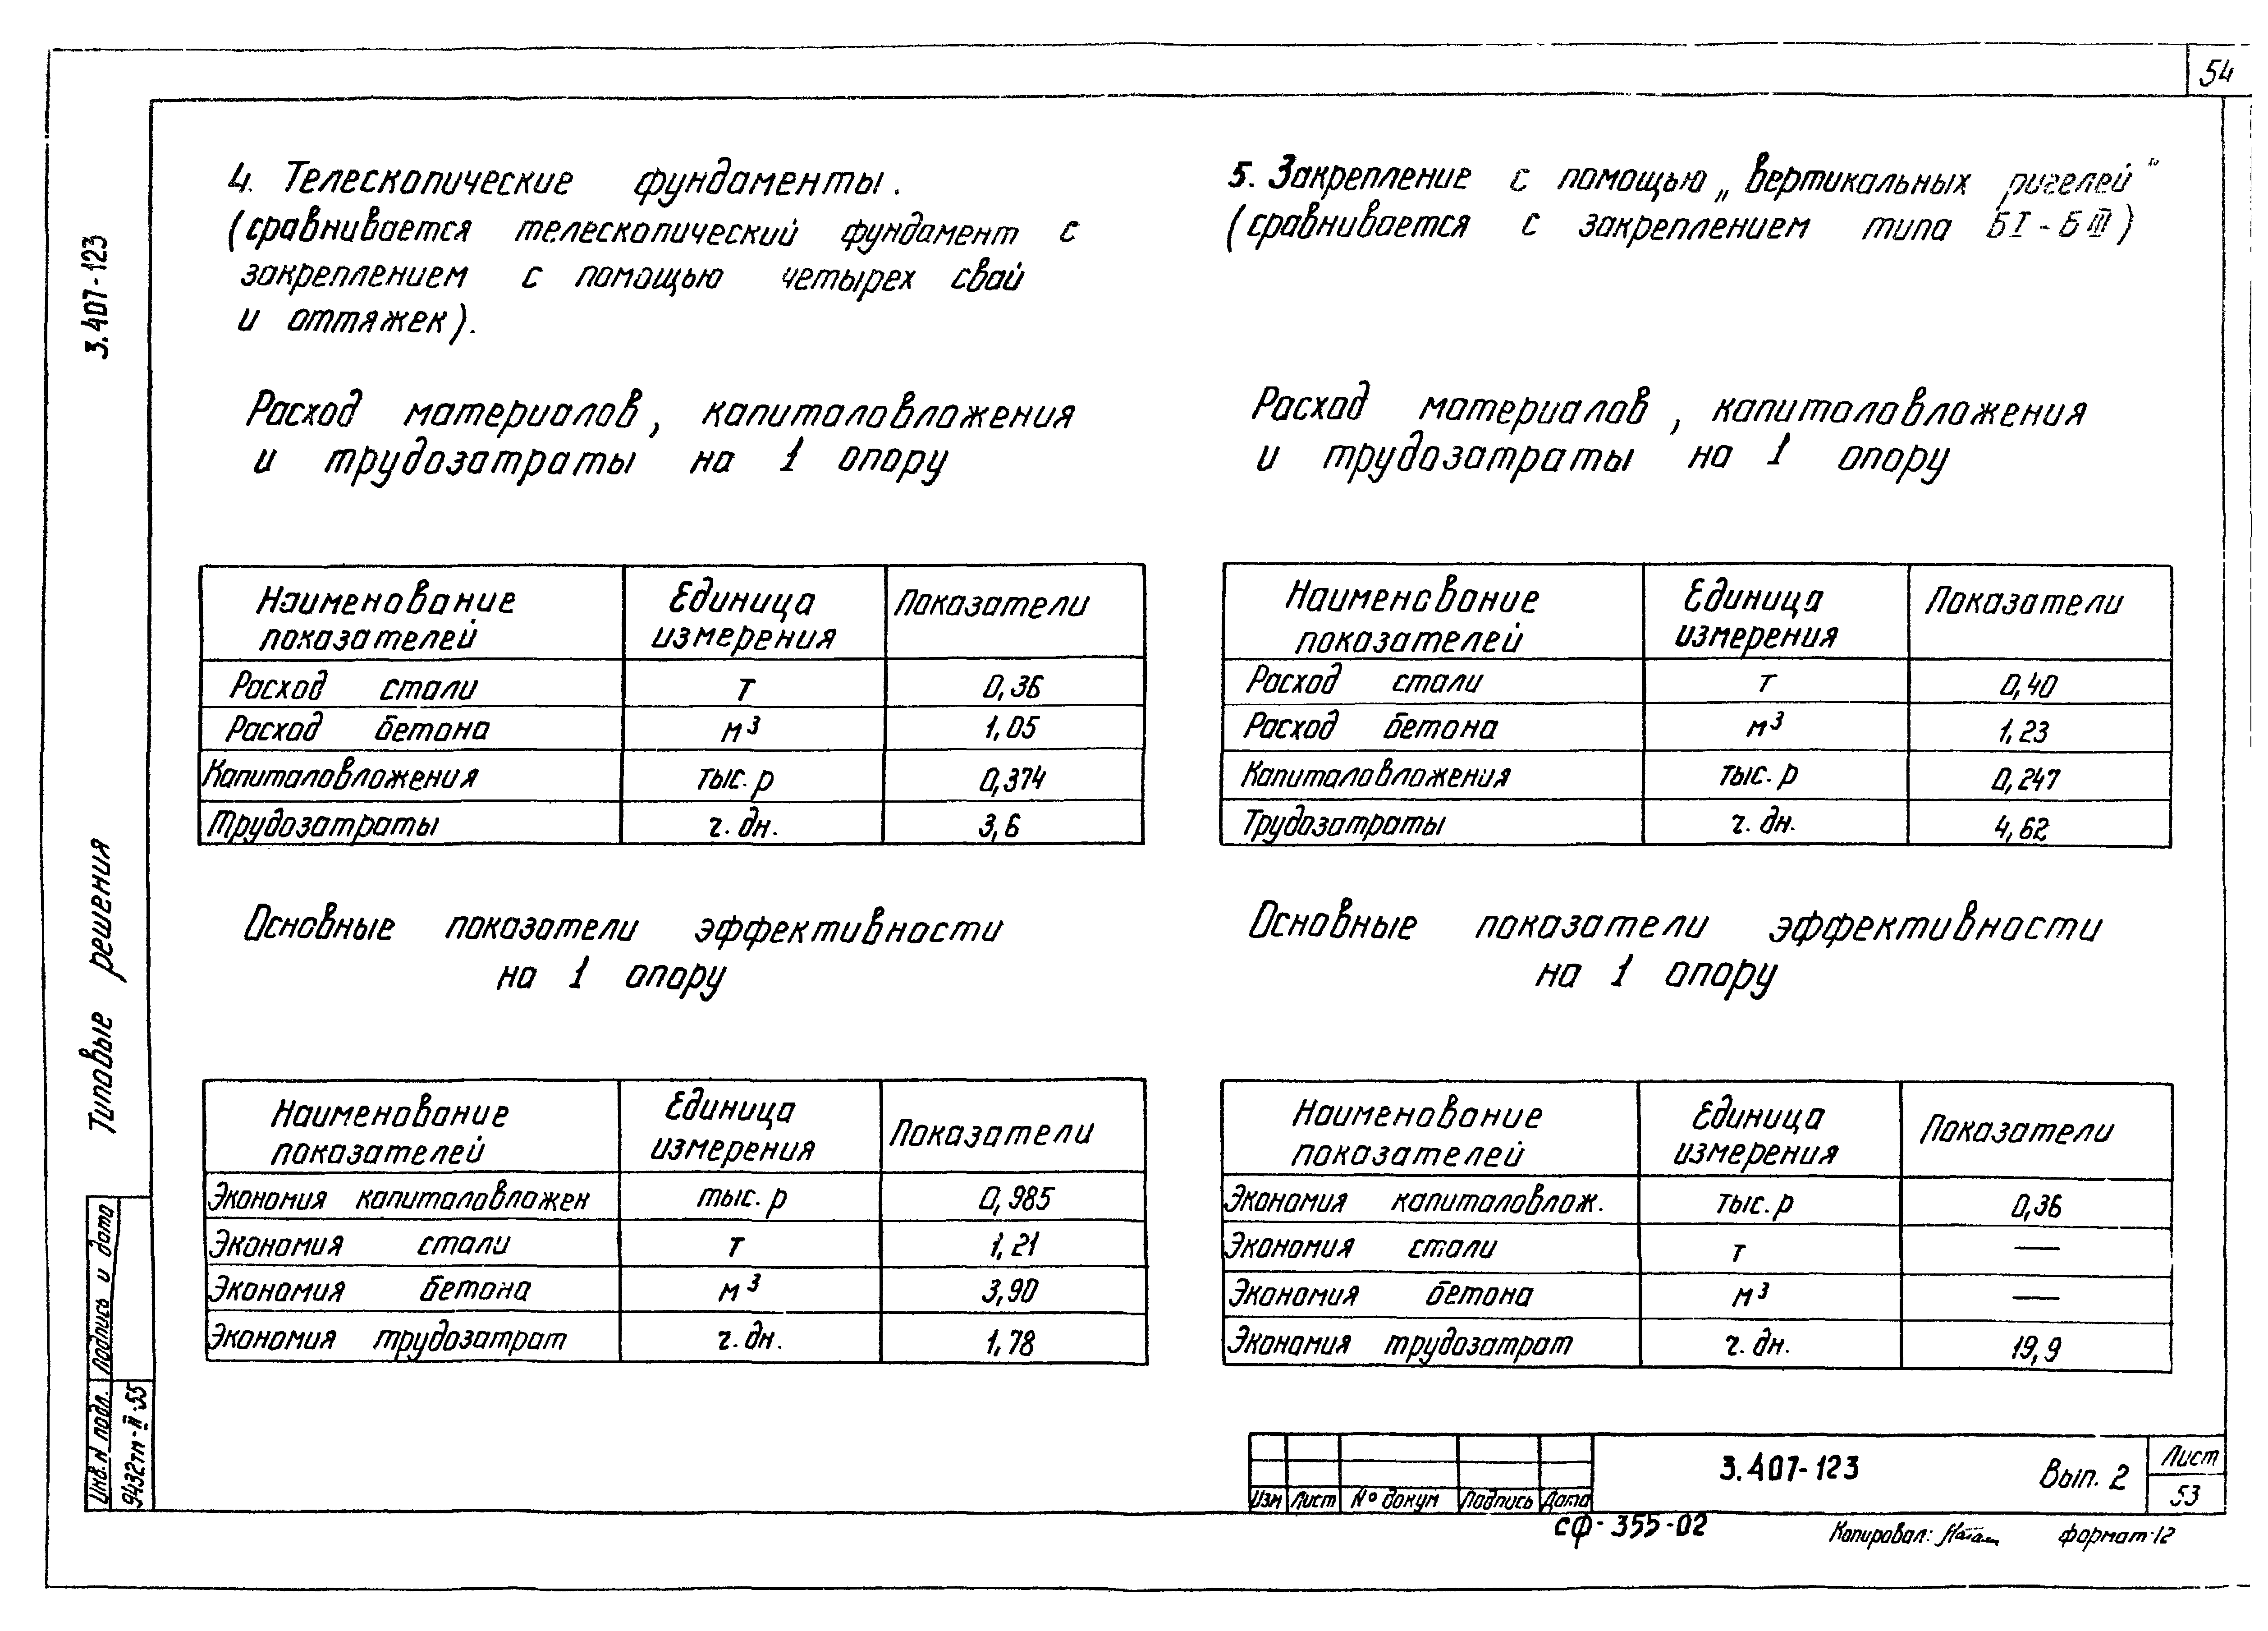 54
4. Телескопические фундаменты.
(сравнивается телескопический фундамент с
закреплением с помощью четырех свай
и оттяжек).
Расход материалов, капиталовложения
и трудозатраты на 1 опору
Наименование показателей Единица измерения Показатели
Расход стали т 0,36
Расход бетона м³ 1,05
Капиталовложения тыс. р 0,374
Трудозатраты ч. дн. 3,6
Основные показатели эффективности
на 1 опору
Наименование показателей Единица измерения Показатели
Экономия капиталовложен тыс. р 0,985
Экономия стали т 1,21
Экономия бетона м³ 3,90
Экономия трудозатрат ч. дн. 1,78
5. Закрепление с помощью „вертикальных ригелей“
(сравнивается с закреплением типа БI-БIII)
Расход материалов, капиталовложения
и трудозатраты на 1 опору
Наименование показателей Единица измерения Показатели
Расход стали т 0,40
Расход бетона м³ 1,23
Капиталовложения тыс. р 0,247
Трудозатраты ч. дн. 4,62
Основные показатели эффективности
на 1 опору
Наименование показателей Единица измерения Показатели
Экономия капиталовлож. тыс. р 0,36
Экономия стали т —
Экономия бетона м³ —
Экономия трудозатрат ч. дн. 19,9
3.407-123
Типовые решения
Подпись и дата
Инв. N подл.
9432тп-II-55
Изм Лист N° докум Подпись Дата
3.407-123 Вып. 2
Лист
53
сф-355-02
Копировал: формат 12